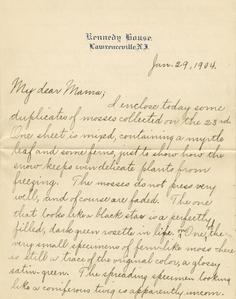 Kennedy House,
Lawrenceville, N.J.
Jan. 29, 1904.
My dear Mama;
I enclose today some
duplicates of mosses collected on the 23rd
One sheet is mixed, containing a myrtle
leaf and some ferns, just to show how the
snow keeps win delicate plants from
freezing. The mosses do not press very
well, and of course are faded. The one
that looks like a black star is a perfectly
filled, dark green rosette in life. One, the
very small specimens of fernlike moss there
is still a trace of the original color, a glossy
satin-green. The spreading specimen looking
like a coniferous twig is apparently uncom-